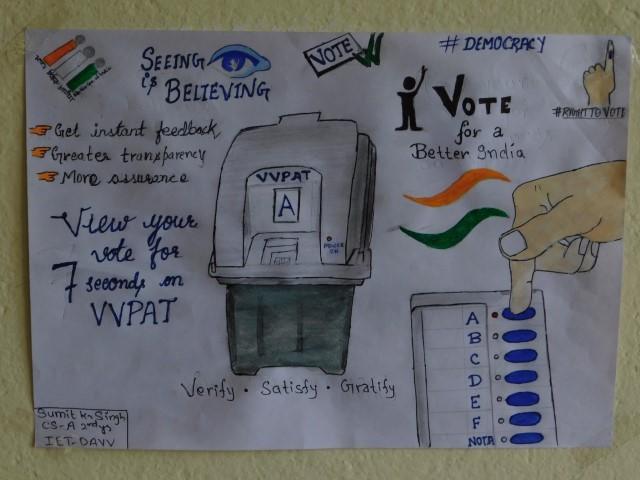 SEEING
is
BELIEVING
VOTE
# DEMOCRACY
#RIGHT TO VOTE
Get instant feedback
Greater transparency
More assurance
VOTE
for a
Better India
View your
vote for
7 seconds on
VVPAT
VVPAT
A
POWER
ON
Verify · Satisfy · Gratify
A
B
C
D
E
F
NOTA
Sumit Kr Singh
CS-A 2nd yr
IET-DAVV